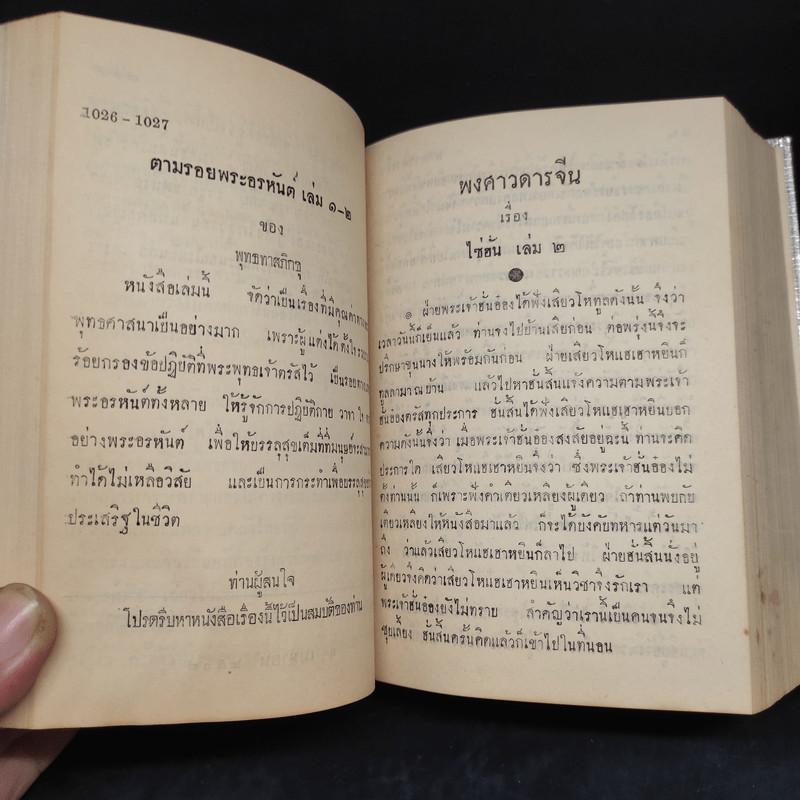 1026 – 1027
ตามรอยพระอรหันต์ เล่ม ๑–๒
ของ
พุทธทาสภิกขุ
หนังสือเล่มนี้ จัดว่าเป็นเรื่องที่มีคุณค่าทาง
พุทธศาสนาเป็นอย่างมาก เพราะผู้แต่งได้ตั้งใจ
ร้อยกรองข้อปฏิบัติที่พระพุทธเจ้าตรัสไว้ เป็นรอยทาง
พระอรหันต์ทั้งหลาย ให้รู้จักการปฏิบัติกาย วาจา ใจ
อย่างพระอรหันต์ เพื่อให้บรรลุสุขเต็มที่ที่มนุษย์จะ
ทำได้ไม่เหลือวิสัย และเป็นการกระทำเพื่อบรรลุสุข
ประเสริฐในชีวิต
ท่านผู้สนใจ
โปรดรีบหาหนังสือเรื่องนี้ไว้เป็นสมบัติของท่าน
พงศาวดารจีน
เรื่อง
ไซ่ฮั่น เล่ม ๒
๏ ฝ่ายพระเจ้าฮั่นอ๋องได้ฟังเสียวโหทูลดังนั้น จึงว่า
เวลาวันนี้ก็เย็นแล้ว ท่านจงไปบ้านเสียก่อน ต่อพรุ่งนี้จึงจะ
ปรึกษาขุนนางให้พร้อมกันก่อน ฝ่ายเสียวโหแฮเฮาหยินก็
ทูลลามาณบ้าน แล้วไปหาฮั่นสิ้นแจ้งความตามพระเจ้า
ฮั่นอ๋องตรัสทุกประการ ฮั่นสิ้นได้ฟังเสียวโหแฮเฮาหยินบอก
ความดังนั้นจึงว่า เมื่อพระเจ้าฮั่นอ๋องสงสัยอยู่ฉะนี้ ท่านจะคิด
ประการใด เสียวโหแฮเฮาหยินจึงว่า ซึ่งพระเจ้าฮั่นอ๋องไม่
ตั้งท่านนั้น ก็เพราะฟังคำเตียวเหลียงผู้เดียว ถ้าท่านพบกับ
เตียวเหลียงให้หนังสือมาแล้ว ก็จะได้บังคับทหารแต่วันมา
ถึง ว่าแล้วเสียวโหแฮเฮาหยินก็ลาไป ฝ่ายฮั่นสิ้นนั่งอยู่
ผู้เดียวจึงคิดว่าเสียวโหแฮเฮาหยินเห็นวิชาจึงรักเรา แต่
พระเจ้าฮั่นอ๋องยังไม่ทราบ สำคัญว่าเรานี้เป็นคนจนจึงไม่
ชุบเลี้ยง ฮั่นสิ้นครั้นคิดแล้วก็เข้าไปในที่นอน